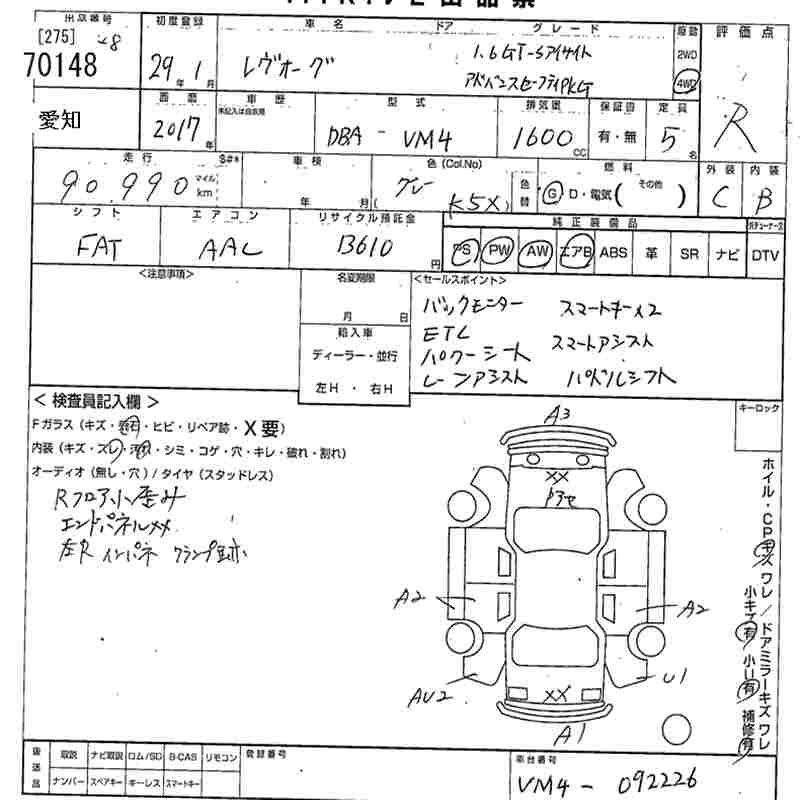 出品番号 初度登録 車名 ドア グレード 原動 評価点
[275] 28
70148
29年 1月
レヴォーグ
1.6GT-Sアイサイト
アドバンスセーフティPKG
2WD
4WD
R
愛知
西暦 車歴 型式 排気量 保証書 定員
2017年
未記入は自家用
DBA - VM4
1600 CC
有・無
5名
走行 車検 色(Col.No) 燃料 外装 内装
90,990 マイル km
年 月
グレー
(K5X)
色替
G D・電気( その他 )
C B
シフト エアコン リサイクル預託金 純正装備品
FAT AAC 13610円
PS PW AW エアB ABS 革 SR ナビ DTV
<注意事項> 名変期限 <セールスポイント>
月 日
輸入車
ディーラー・並行
左H・右H
バックモニター スマートキー×2
ETC
パワーシート スマートアシスト
レーンアシスト パドルシフト
<検査員記入欄>
Fガラス(キズ・飛石・ヒビ・リペア跡・X要)
内装(キズ・スレ・汚れ・シミ・コゲ・穴・キレ・破れ・割れ)
オーディオ(無し・穴)/タイヤ(スタッドレス)
Rフロア小歪み
エンドパネルXX
左Rインパネ クランプ跡
キーロック
ホイル・CPキズ ワレ/ドアミラーキズ ワレ
小キズ有 小U有 補修有
A3
XX
A2
A2
AU2
U1
XX
A1
後送品 取説 ナビ取説 ロム/SD B-CAS リモコン 登録番号
ナンバー スペアキー キーレス スマートキー
車台番号
VM4 - 092226